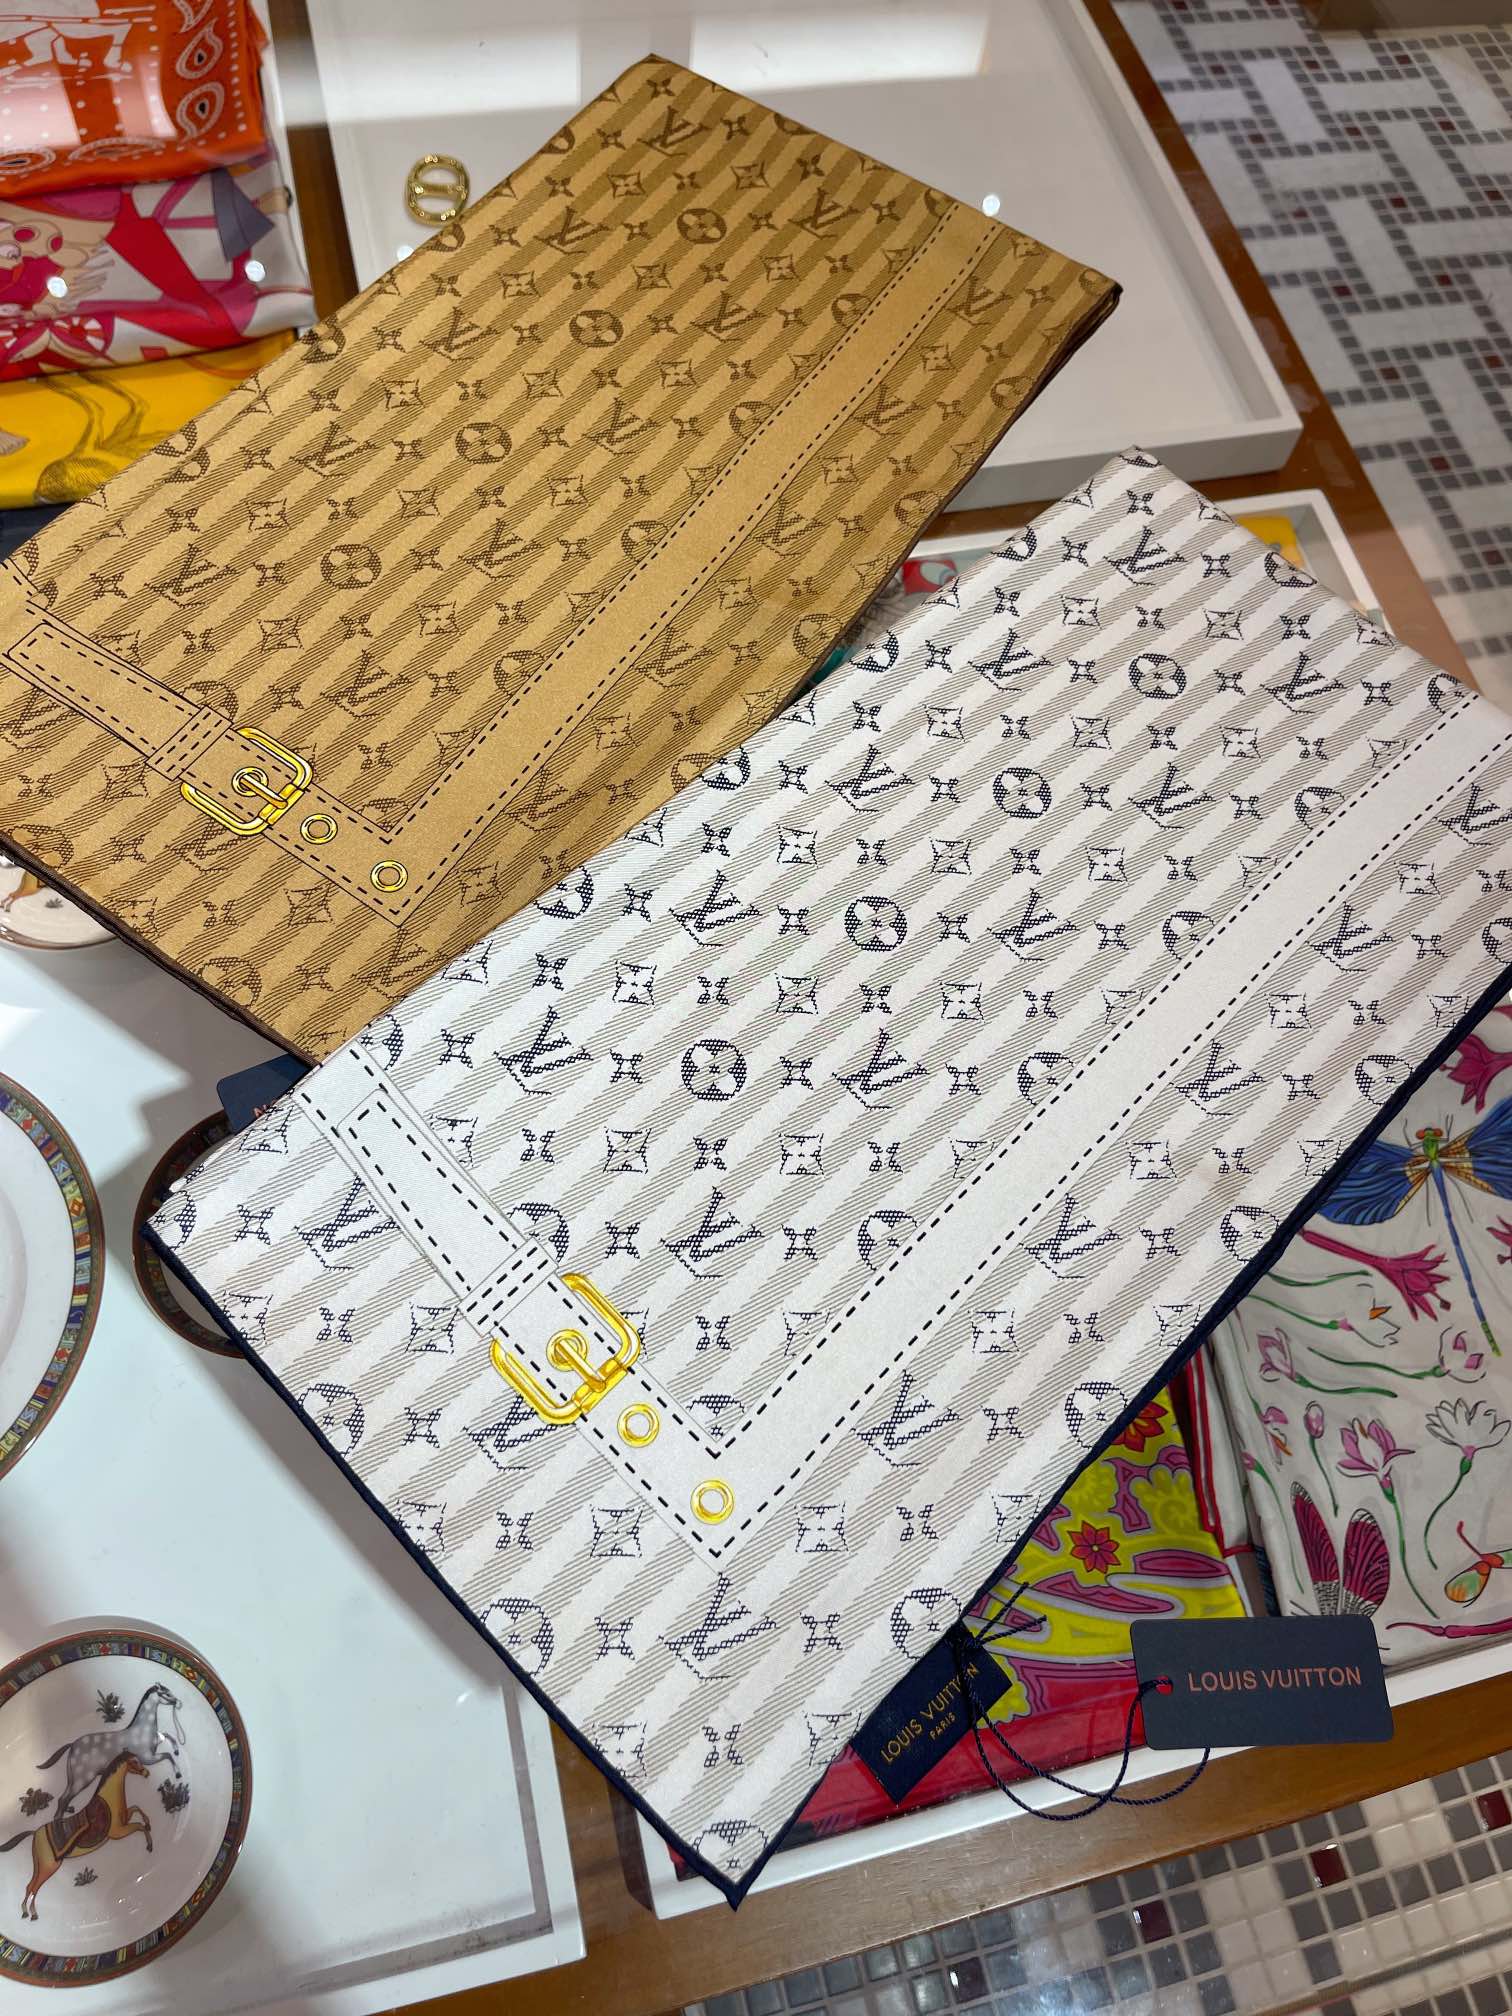 LOUIS VUITTON
PARIS
LOUIS VUITTON